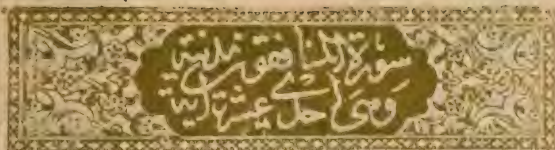 سورة المنافقون مدنية
وهى احدى عشرة آية